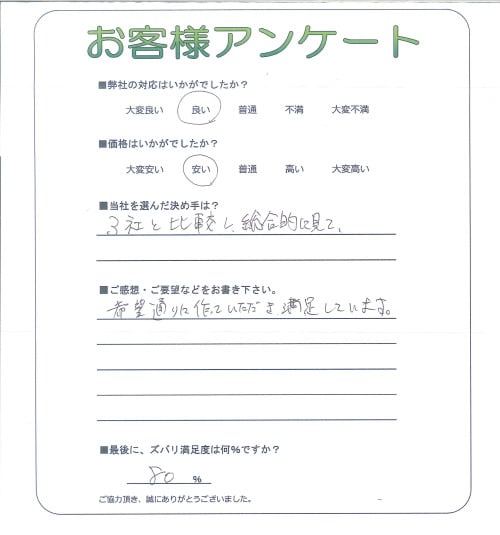 お客様アンケート
■弊社の対応はいかがでしたか？
大変良い 良い 普通 不満 大変不満
■価格はいかがでしたか？
大変安い 安い 普通 高い 大変高い
■当社を選んだ決め手は？
3社と比較し、総合的に見て、
■ご感想・ご要望などをお書き下さい。
希望通りに作っていただき満足しています。
■最後に、ズバリ満足度は何％ですか？
80 ％
ご協力頂き、誠にありがとうございました。